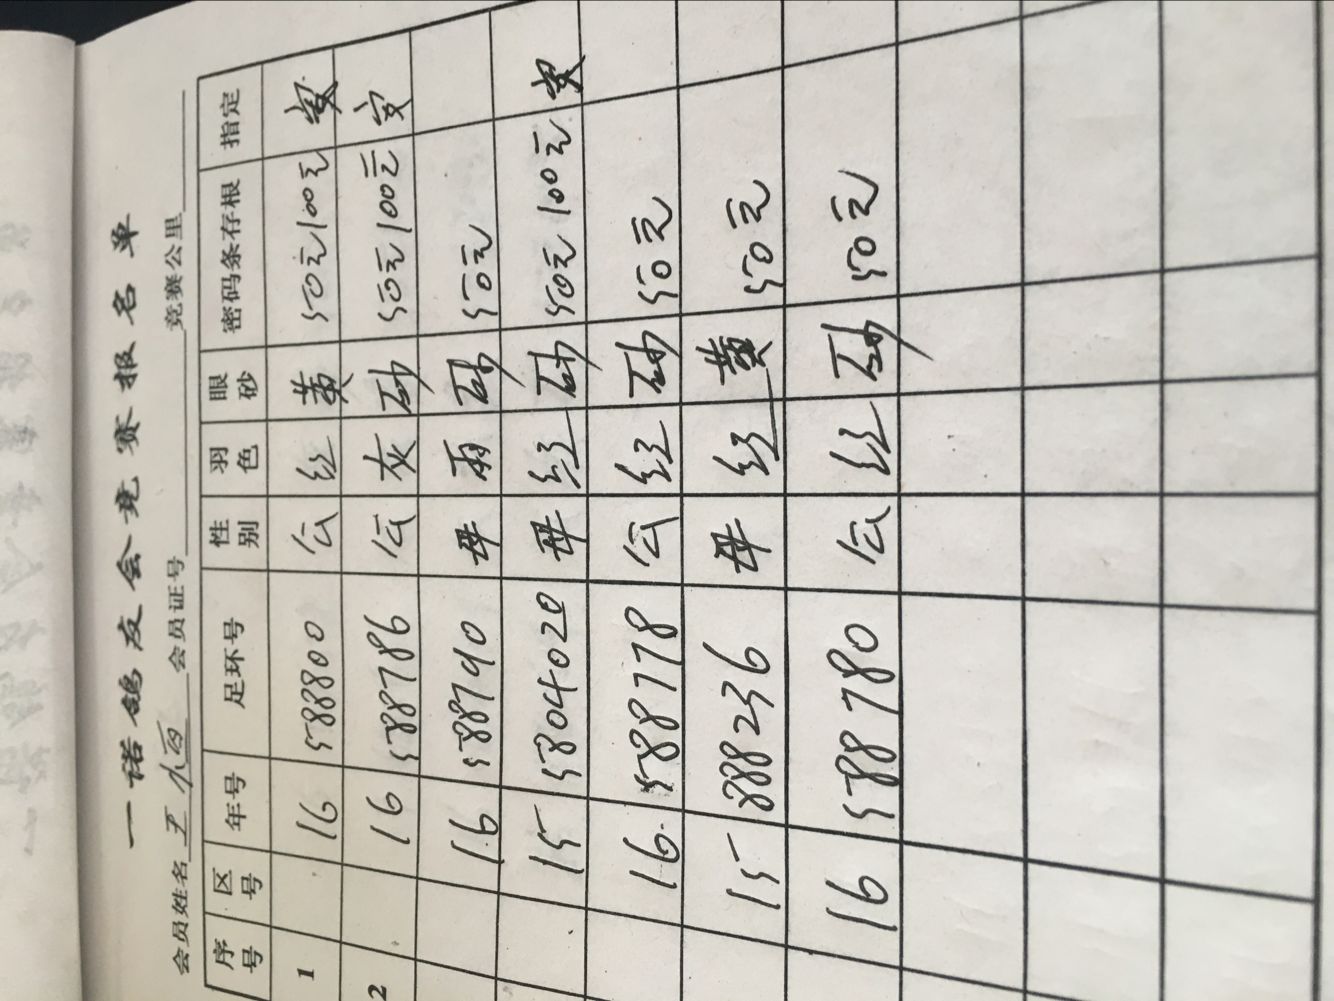 一诺鸽友会竞赛报名单
会员姓名 王 会员证号 竞赛公里
序号 区号 年号 足环号 性别 羽色 眼砂 密码条存根 指定
1 16 588800 公 红 黄 50元100元
2 16 588786 公 灰 砂 50元100元
16 588790 母 雨 砂 50元
15 5804020 母 红 砂 50元 100元
16 588778 公 红 砂 50元
15 888236 母 红 黄 50元
16 588780 公 红 砂 50元